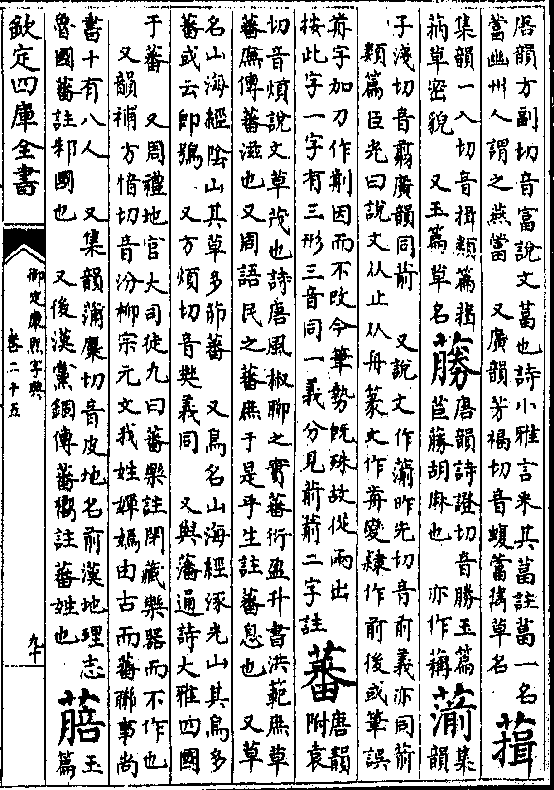 唐韻方副切音富說文葍也詩小雅言采其葍註葍一名
䔰幽州人謂之燕葍 又廣韻芳福切音蝮葍䔰草名
集韻一入切音揖類篇
蒳草密貌 又玉篇草名
蕂
唐韻詩證切音勝玉篇
苣藤胡麻也 亦作䕝
葥
集
韻
子淺切音翦廣韻同前 又說文作湔昨先切音前義亦同葥
類篇臣光曰說文从止从舟篆文作歬變隸作前後或筆誤
歬字加刀作剒因而不改今筆勢既殊故從兩出
按此字一字有三形三音同一義分見葥萷二字註
蕃
唐韻
附袁
切音煩說文草茂也詩唐風椒聊之實蕃衍盈升書洪範庶草
蕃廡傳蕃滋也又周語民之蕃庶于是乎生註蕃息也 又草
名山海經陰山其草多茆蕃 又鳥名山海經涿光山其鳥多
蕃或云即鴞 又方煩切音義同 又與藩通詩大雅四國
于蕃 又周禮地官大司徒九曰蕃樂註閉藏樂器而不作也
又韻補方愔切音汾柳宗元文我姓嬋嫣由古而蕃聯事尚
書十有八人 又集韻蒲麋切音皮地名前漢地理志
魯國蕃註邾國也 又後漢黨錮傳蕃嚮註蕃姓也
玉
篇
欽定四庫全書
御定康熙字典
卷二十五
九十